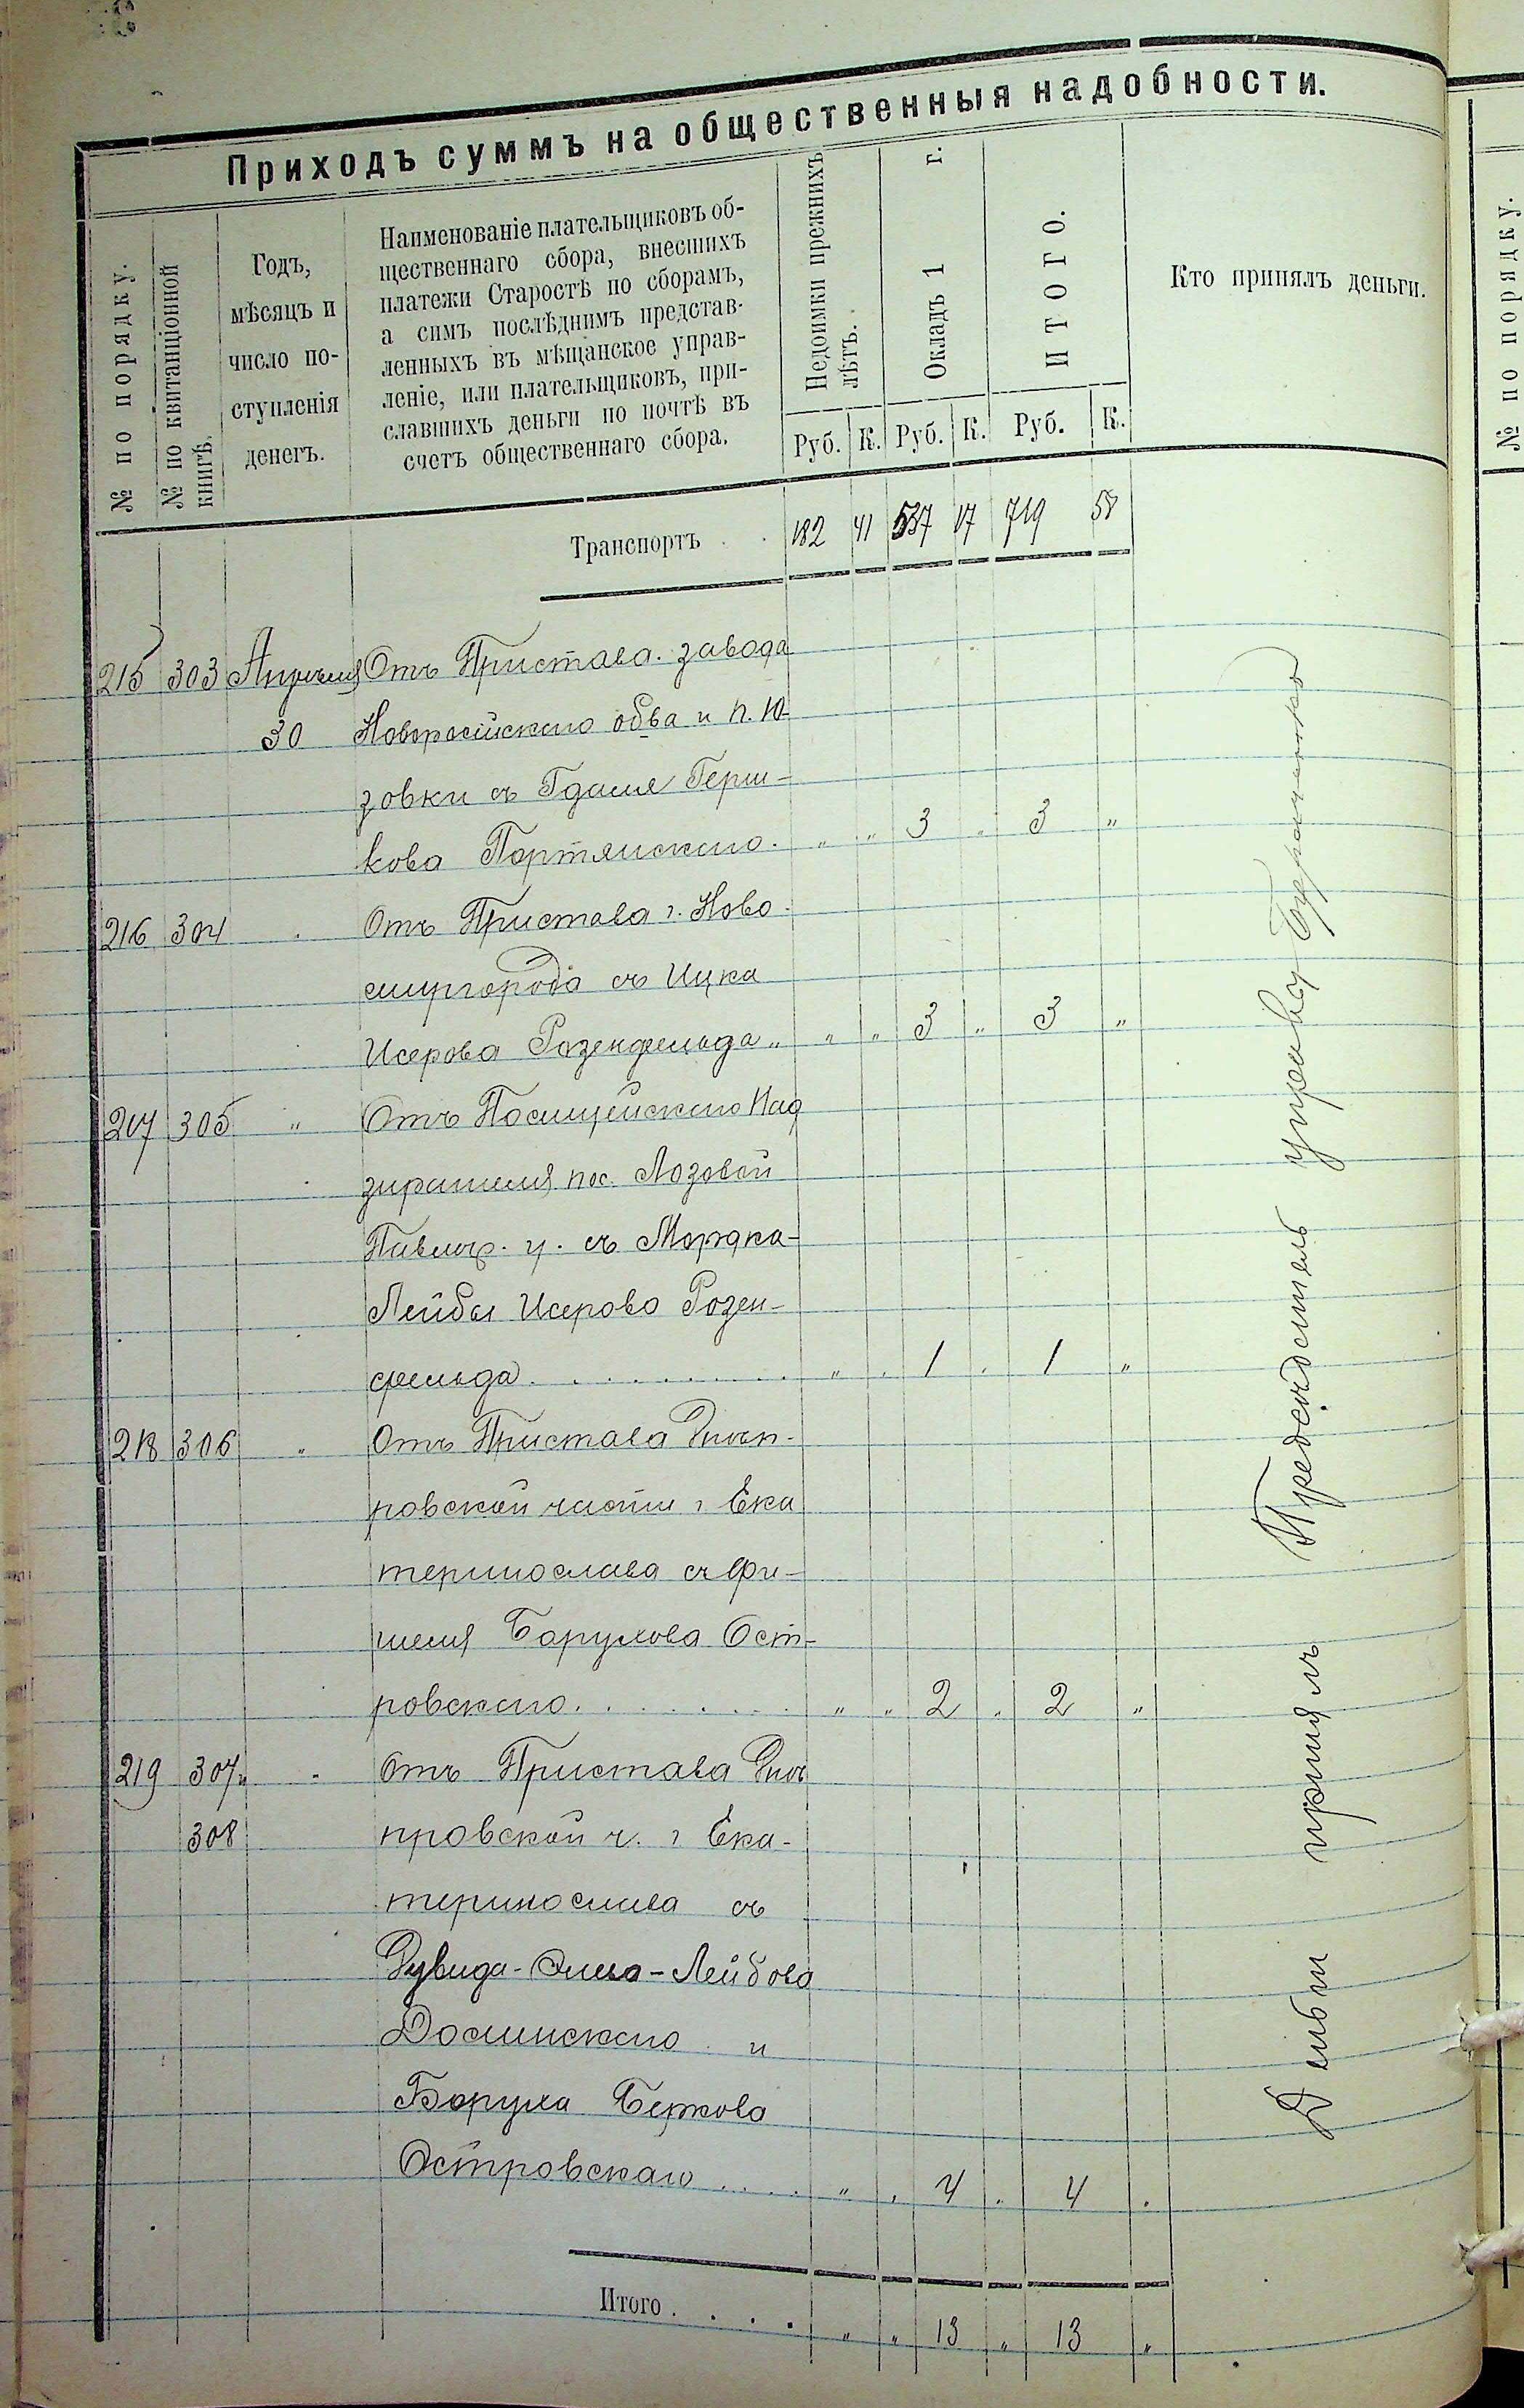 Приходъ суммъ на общественныя надобности.
№ по порядку.
№ по квитанціонной
книгѣ.
Годъ,
мѣсяцъ и
число по-
ступленія
денегъ.
Наименованіе плательщиковъ об-
щественнаго сбора, внесшихъ
платежи Старостѣ по сборамъ,
а симъ послѣднимъ представ-
ленныхъ въ мѣщанское управ-
леніе, или плательщиковъ, при-
славшихъ деньги по почтѣ въ
счетъ общественнаго сбора.
Недоимки прежнихъ
лѣтъ.
Окладъ 1 г.
ИТОГО.
Кто принялъ деньги.
Руб. К. Руб. К. Руб. К.
Транспортъ . . 182 41 537 17 719 58
215 303 Апрѣля Отъ Пристава. завода
30 Новоросійскаго об-ва и п. Ю-
зовки съ Гдаля Герш-
кова Портянскаго. " " 3 " 3 "
216 304 " Отъ Пристава г. Ново-
миргорода съ Ицка
Исерова Розенфельда " " " 3 " 3 "
217 305 " Отъ Полицейскаго Над
зирателя пос. Лозовой
Павлогр. у. съ Мордка-
Лейбы Исерова Розен-
фельда . . . . . . . . . . " " 1 " 1 "
218 306 " Отъ Пристава Днѣп-
ровской части г Ека
теринослава съ Фи-
шеля Барухова Ост-
ровскаго. . . . . . . . " " 2 " 2 "
219 307 и " Отъ Пристава Днѣ
308 провской ч. г Ека-
теринослава съ
Дувида-Элья-Лейбова
Долинскаго и
Боруха Беркова
Островскаго . . . . " " 4 " 4 "
Итого . . . . " " 13 " 13 "
Деньги принялъ Предсѣдатель управы
№ по порядку.